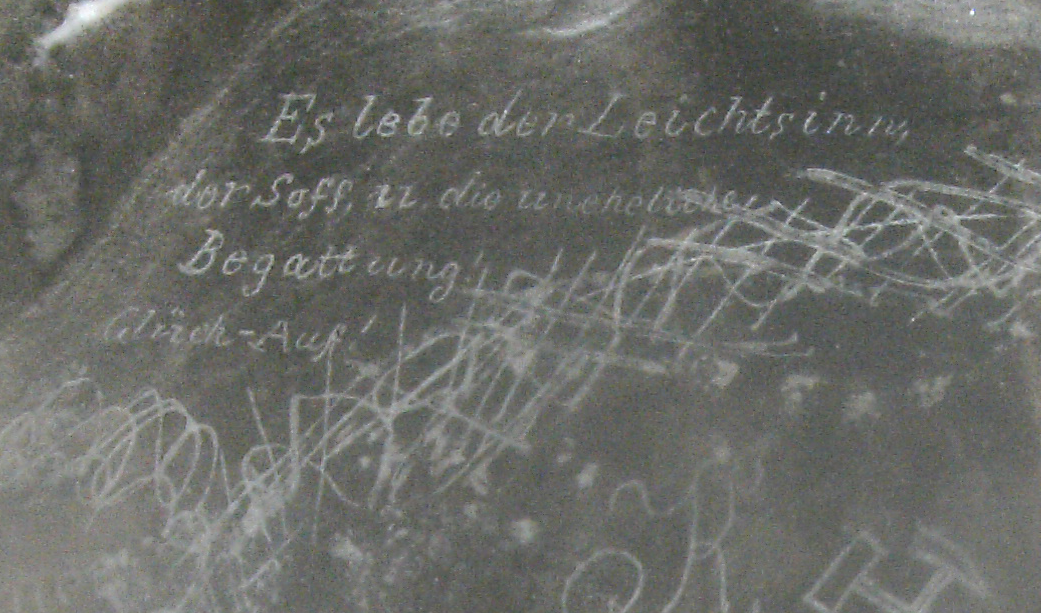 Es lebe der Leichtsinn,
der Soff, u. die uneheliche
Begattung!
Glück-Auf!
H